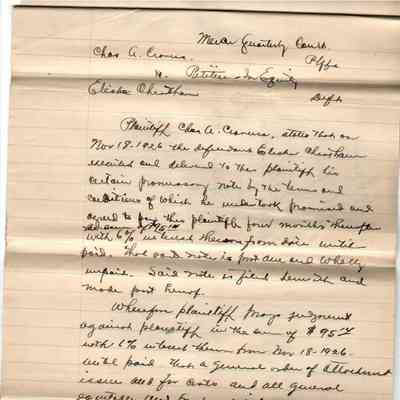 Mercer Quarterly Court.
Chas A. Pltff
vs. Petition In Equity
Elisha Cheatham Deft
Plaintiff Chas A. states that on
Nov 18-1926 the defendant Elisha Cheatham
executed and delivered to the plaintiff his
certain promissory note by the terms and
conditions of which he undertook promised and
agreed to pay this plaintiff four months thereafter
the sum of $95
with 6% interest thereon from date until
paid. That said note is past due and wholly
unpaid. Said note is filed herewith and
made part hereof.
Wherefore plaintiff prays judgment
against plaintiff in the sum of $95
with 6% interest thereon from Nov 18-1926-
until paid that a general order of attachment
issue and for costs and all general
equitable